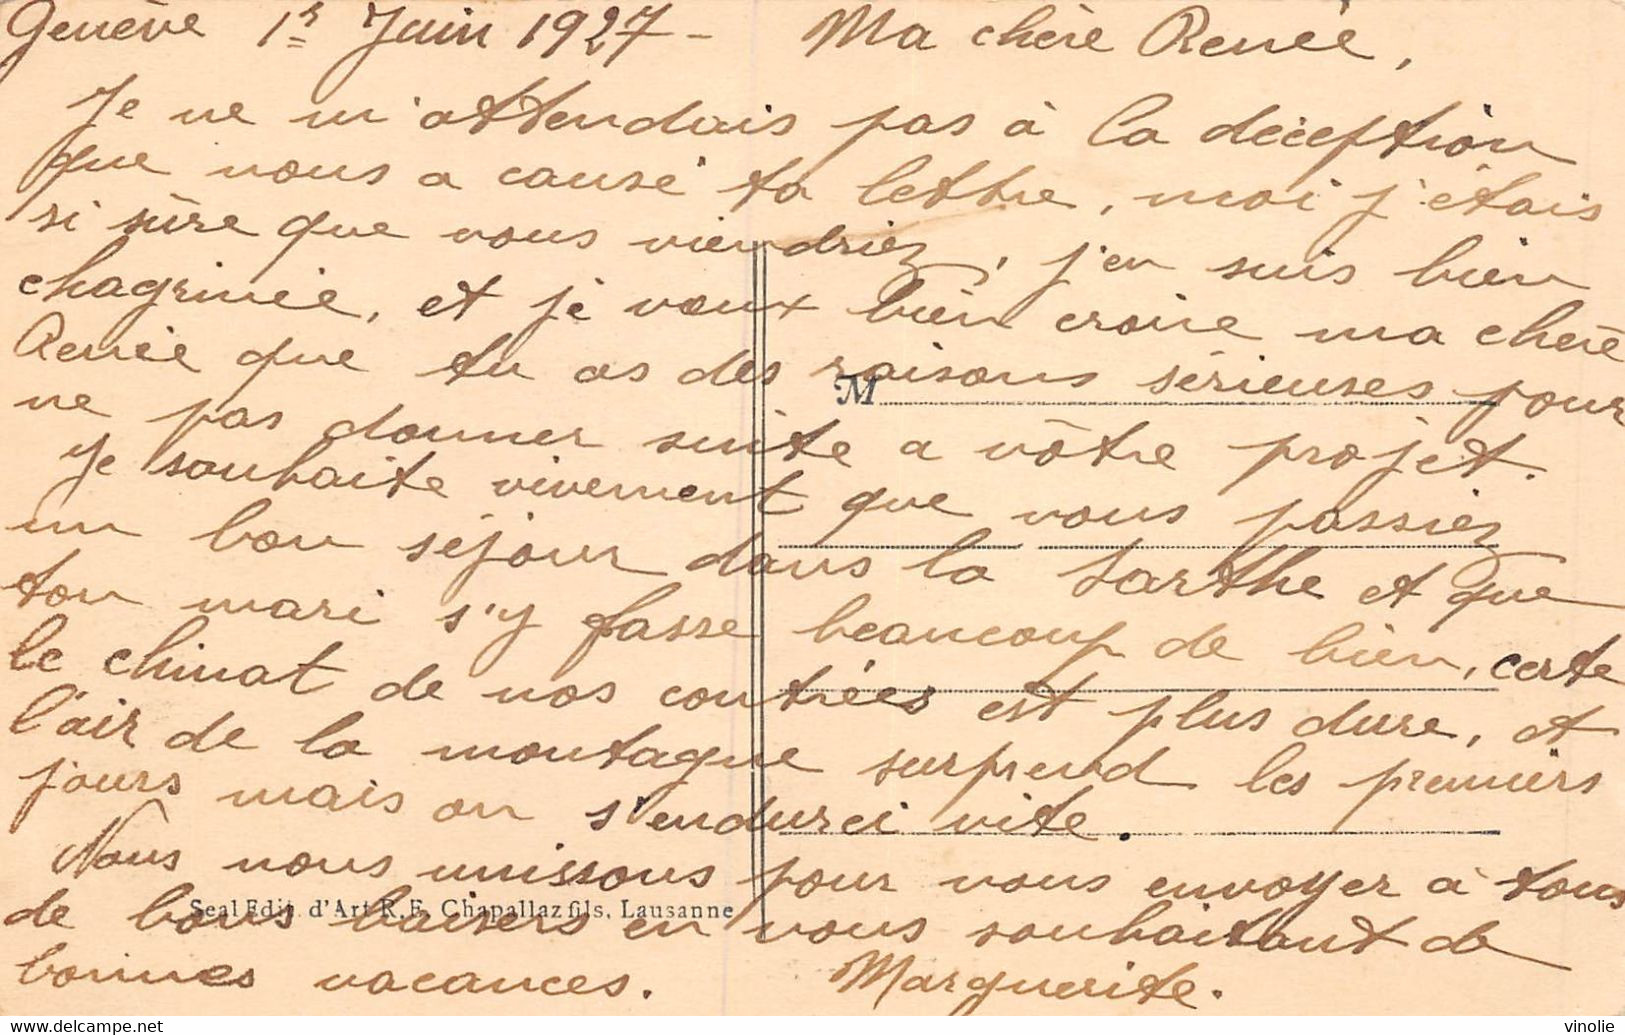 Genève 1r Juin 1927 - Ma chère Renée,
Je ne m'attendais pas à la déception
que nous a causé ta lettre, moi j'étais
si sûre que vous viendriez, j'en suis bien
chagrinée, et je veux bien croire ma chère
Renée que tu as des raisons sérieuses pour
M
ne pas donner suite a vôtre projet.
Je souhaite vivement que vous passiez
un bon séjour dans la Sarthe et que
ton mari s'y fasse beaucoup de bien, certe
le climat de nos contrées est plus dure, et
l'air de la montagne surprend les premiers
jours mais on s'endurci vite.
Nous nous unissons pour vous envoyer à tous
Seal Edit. d'Art R.E. Chapallaz fils, Lausanne
de bons baisers en vous souhaitant de
bonnes vacances. Marguerite.
delcampe.net
vinolie